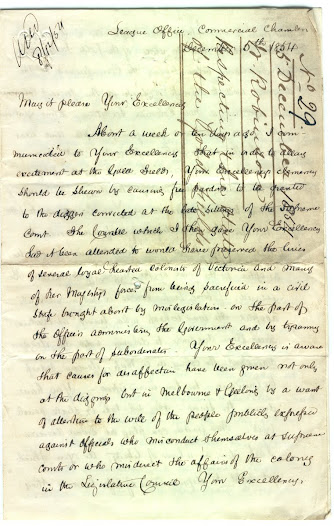 League Office Commercial Chambers
December 5th 1854
No 29
5 December
May it please Your Excellency
About a week or ten days ago I com-
municated to Your Excellency that in order to allay
excitement at the Gold Fields, Your Excellency's clemency
should be shewn by causing free pardons to be granted
to the diggers convicted at the late sittings of the Supreme
Court The Counsel which I then gave Your Excellency
had it been attended to would have preserved the lives
of several loyal hearted colonists of Victoria and many
of Her Majesty's forces from being sacrificed in a civil
strife brought about by mislegislation on the part of
the Officers administering the Government and by tyranny
on the part of subordinates Your Excellency is aware
that causes for disaffection have been given not only
at the diggings but in Melbourne & Geelong by a want
of attention to the will of the people publicly expressed
against Officials who misconduct themselves at Supreme
courts or who misdirect the affairs of the colony
in the Legislative Council Your Excellency,